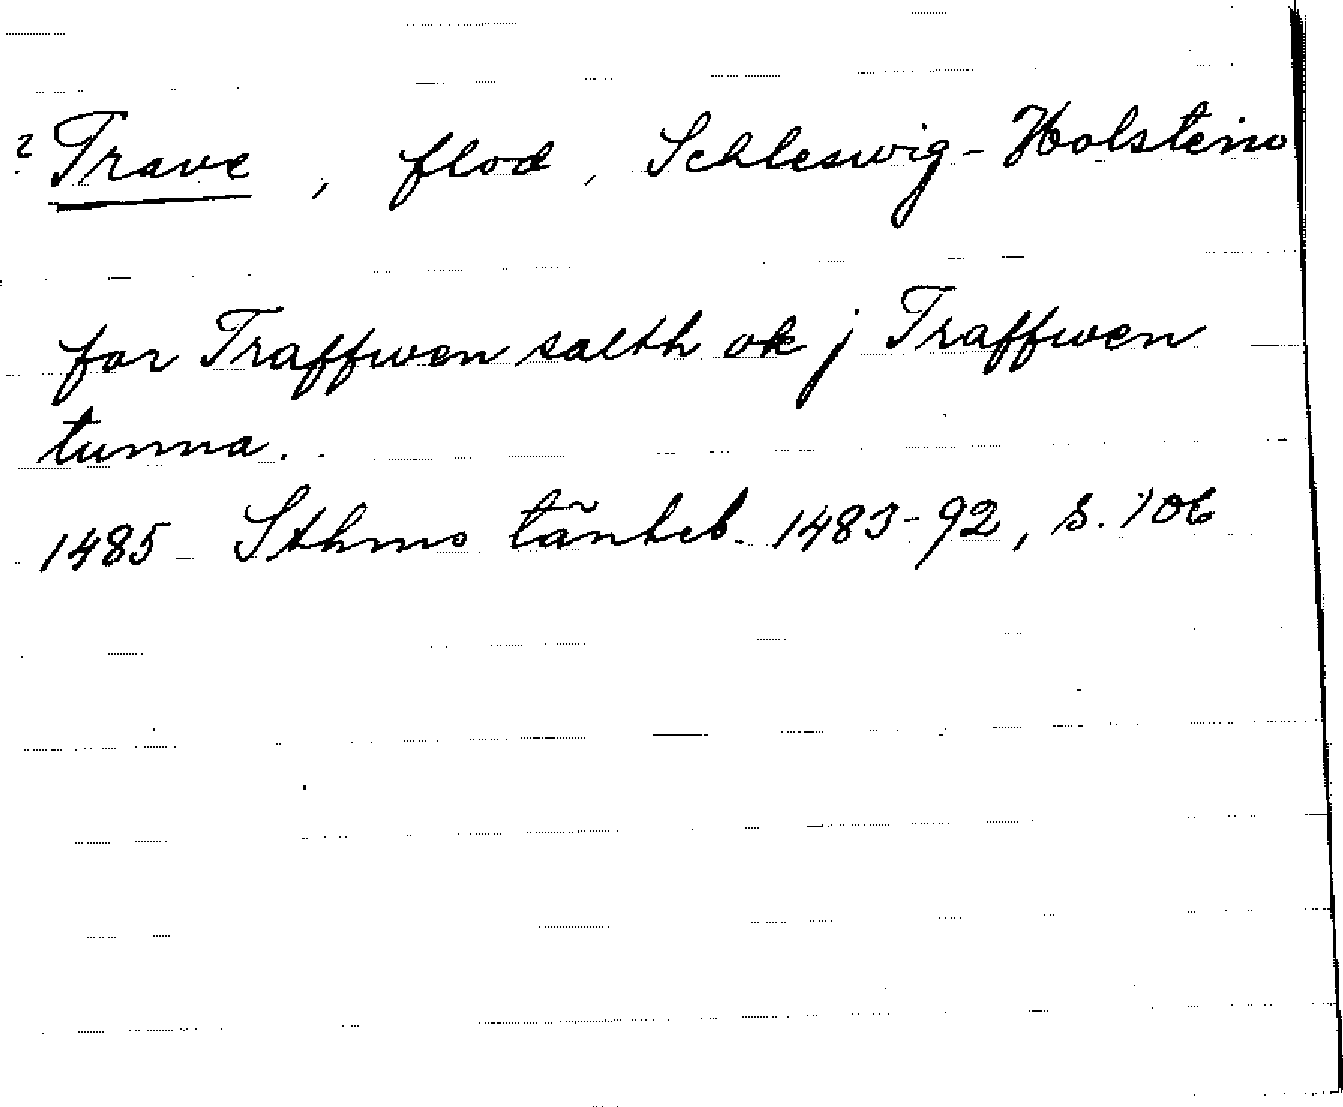 ? Trave, flod, Schleswig-Holstein
for Traffwen salth ok j Traffwen
tunna.
1485 Sthms tänkeb. 1483-92, s. 106